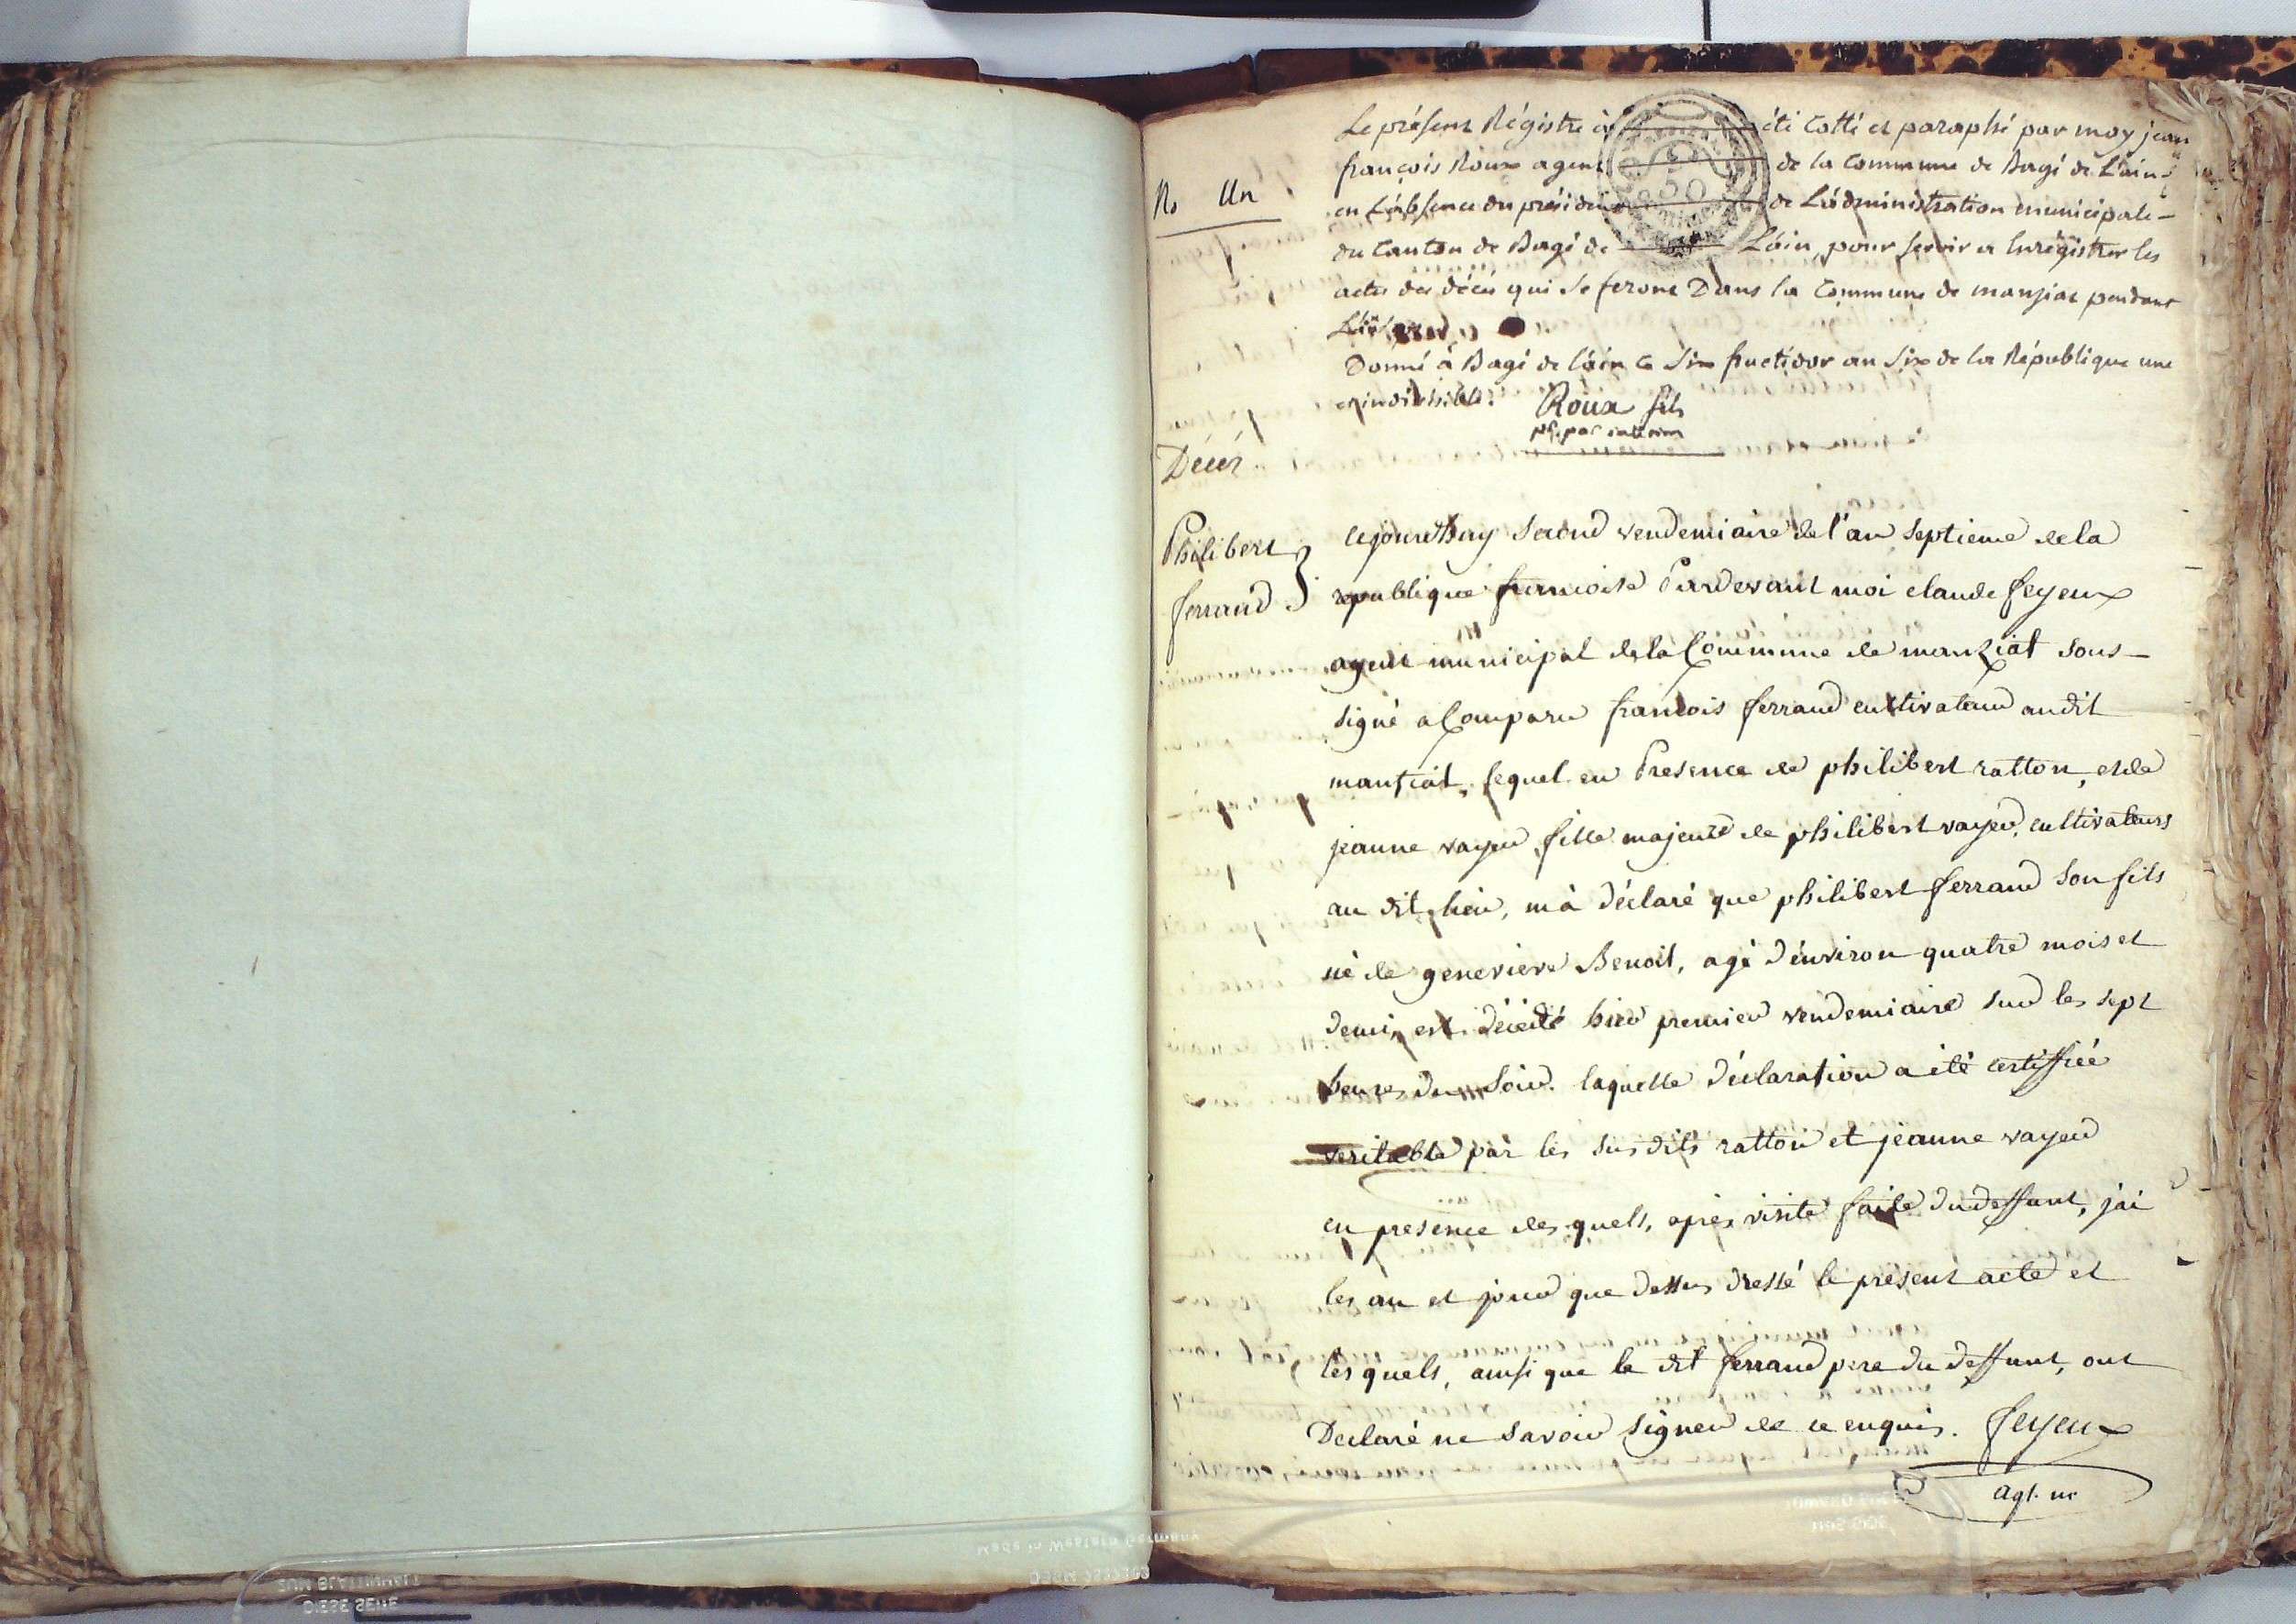 Le présent Régistre à été Cotté et paraphé par moy jean
françois Roux agent de la Commune de Bagé de L'ain
No Un
en L'absence du président de L'administration municipale
du Canton de Bagé de L'ain, pour servir a Enrégistrer les
actes des décès qui se feront Dans la Commune de manziat pendant
Donné à Bagé de l'ain ce Six fructidor an Six de la République une
et indivisible. Roux fils
pt. par interim
Décès
Philibert
ferrand
cejourdhuy second vendemiaire de l'an septieme de la
republique francoise Pardevant moi claude feyeux
agent municipal de la Commune de manziat sous-
signé a Comparu francois ferrand cultivateur audit
manziat, lequel en Presence de philibert ratton, et de
jeanne vayer fille majeure de philibert vayer, cultivateurs
au dit lieu, m'a déclaré que philibert ferrand son fils
né de genevieve Benoit, agé d'environ quatre mois et
demi, est décédé hier premier vendemiaire sur les sept
heures du soir. laquelle déclaration a été certiffiée
veritable par les sus dits ratton et jeanne vayer
en presence des quels, après visite faite du deffunt, j'ai
les an et jour que dessus dressé le présent acte et
les quels, ainsi que le dit ferrand pere du deffunt, ont
Declaré ne savoir signer de ce enquis. feyeux
agt. m
Made in Western Germany
DIESE SEITE
ZUM BLATTINHALT